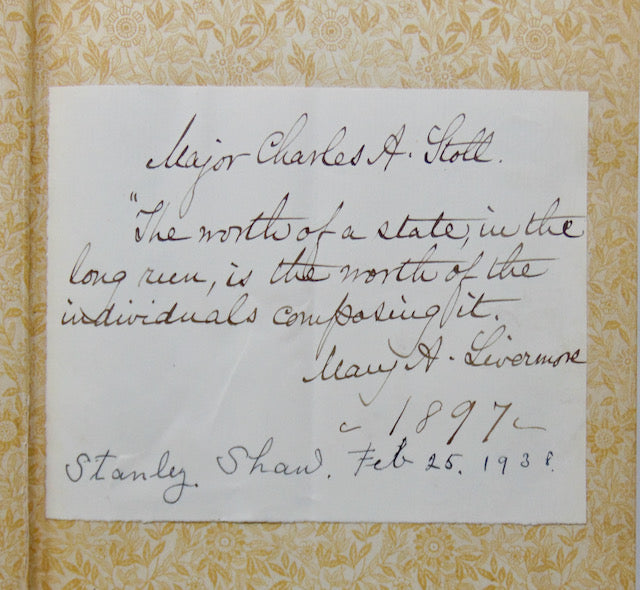 Major Charles A. Stott.
"The worth of a state, in the
long run, is the worth of the
individuals composing it.
Mary A. Livermore
1897
Stanley. Shaw. Feb 25. 1938.